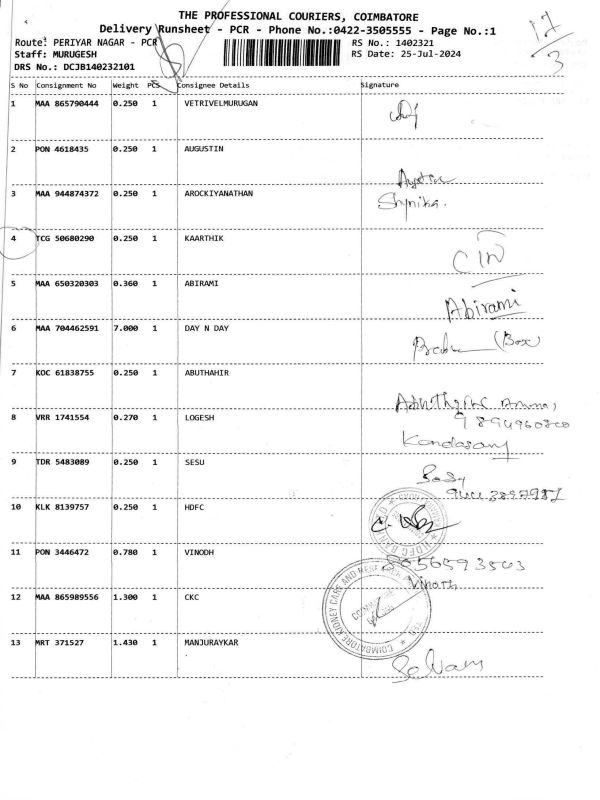 THE PROFESSIONAL COURIERS, COIMBATORE
Delivery Runsheet - PCR - Phone No.:0422-3505555 - Page No.:1
17/3
Route: PERIYAR NAGAR - PCR
RS No.: 1402321
Staff: MURUGESH
RS Date: 25-Jul-2024
DRS No.: DCJB140232101
S No Consignment No Weight PCS Consignee Details Signature
1 MAA 865790444 0.250 1 VETRIVELMURUGAN
2 PON 4618435 0.250 1 AUGUSTIN
3 MAA 944874372 0.250 1 AROCKIYANATHAN
Shynika.
4 TCG 50680290 0.250 1 KAARTHIK
5 MAA 650320303 0.360 1 ABIRAMI
Abirami
6 MAA 704462591 7.000 1 DAY N DAY
(Box)
7 KOC 61838755 0.250 1 ABUTHAHIR
8 VRR 1741554 0.270 1 LOGESH
9894960800
Kandasamy
9 TDR 5483089 0.250 1 SESU
10 KLK 8139757 0.250 1 HDFC
HDFC BANK LTD
11 PON 3446472 0.780 1 VINODH
8056593503
Vinoth
12 MAA 865989556 1.300 1 CKC
COIMBATORE KIDNEY CARE AND
13 MRT 371527 1.430 1 MANJURAYKAR
Selvam